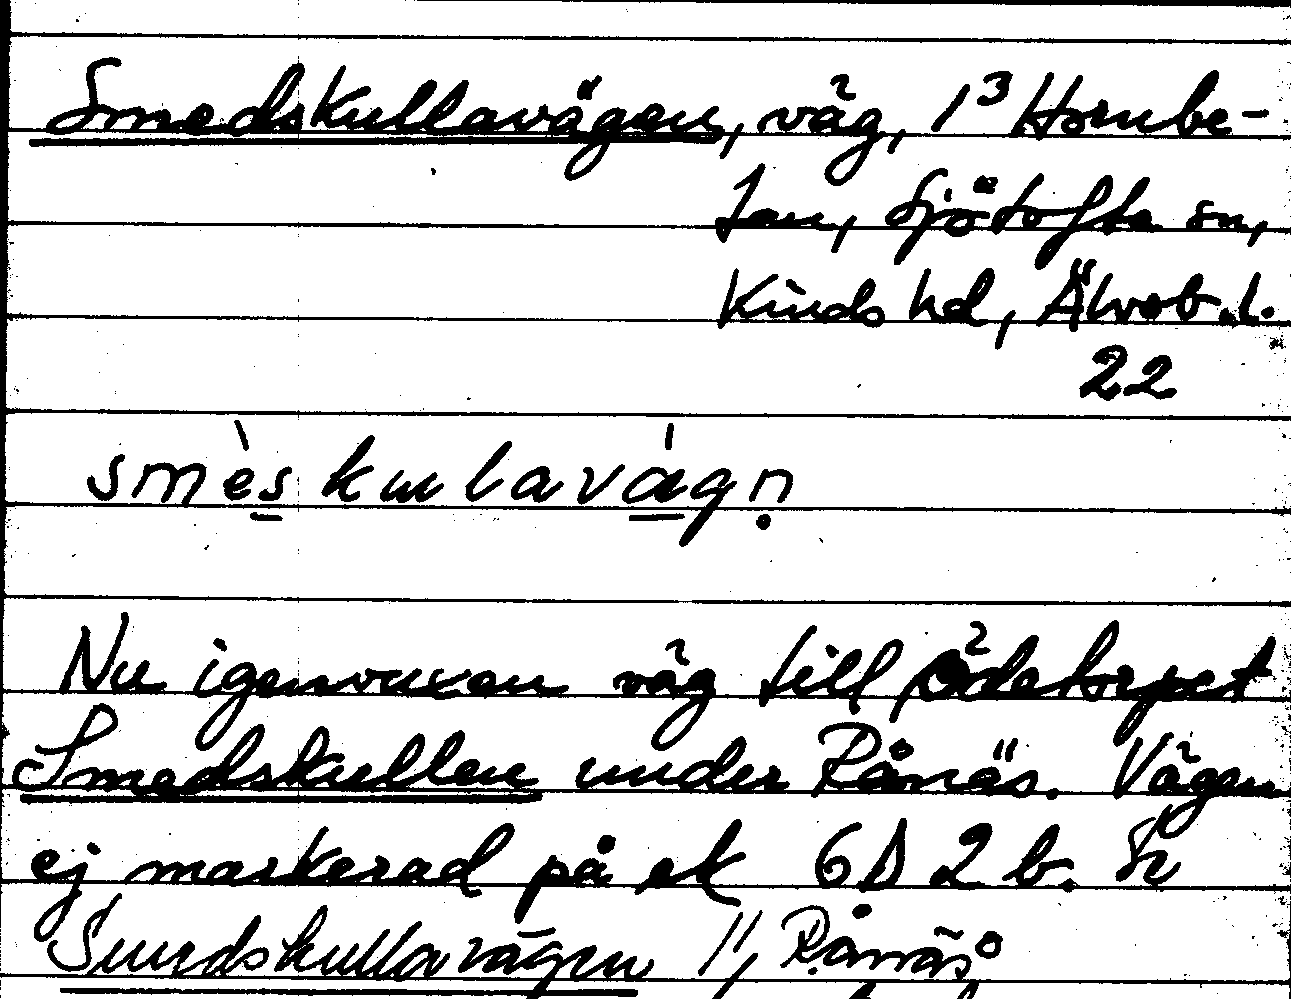 Smedskullavägen, väg, 1³ Hornbe-
tan, Sjötofta sn,
Kinds hd, Älvsb.l.
22
smèskulavágn̥
Nu igenvuxen väg till ödetorpet
Smedskullen under Rånäs. Vägen
ej markerad på ek 6D 2 b. Se
Smedskullavägen 1, Rånäs